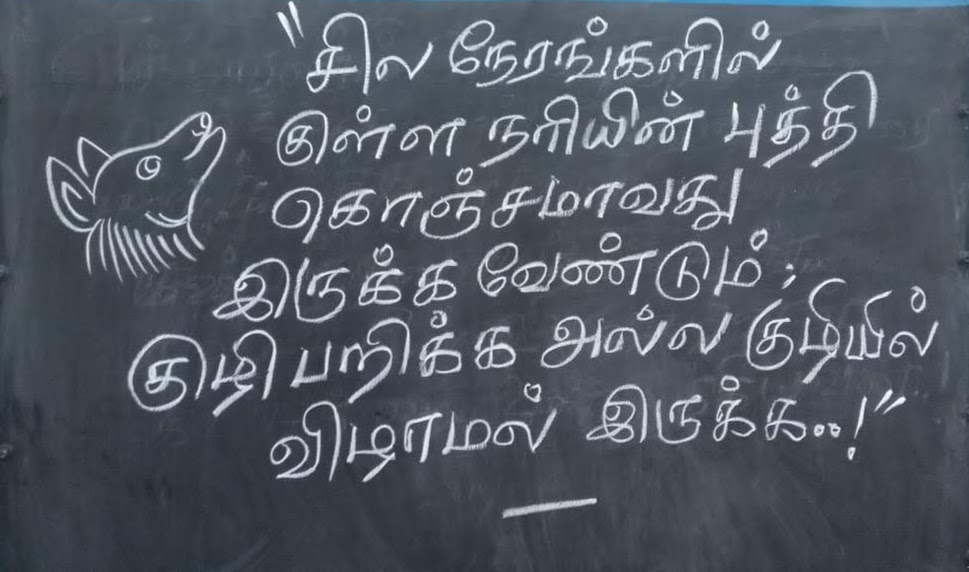 "சில நேரங்களில்
குள்ள நரியின் புத்தி
கொஞ்சமாவது
இருக்க வேண்டும்;
குழி பறிக்க அல்ல குழியில்
விழாமல் இருக்க..!"